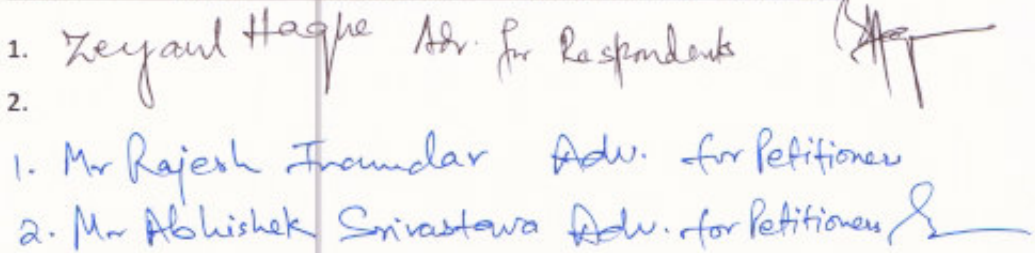 1. Zeyaul Haque Adv. for Respondents
2.
1. Mr Rajesh Inamdar Adv. for Petitioner
2. Mr Abhishek Srivastava Adv. for Petitioner